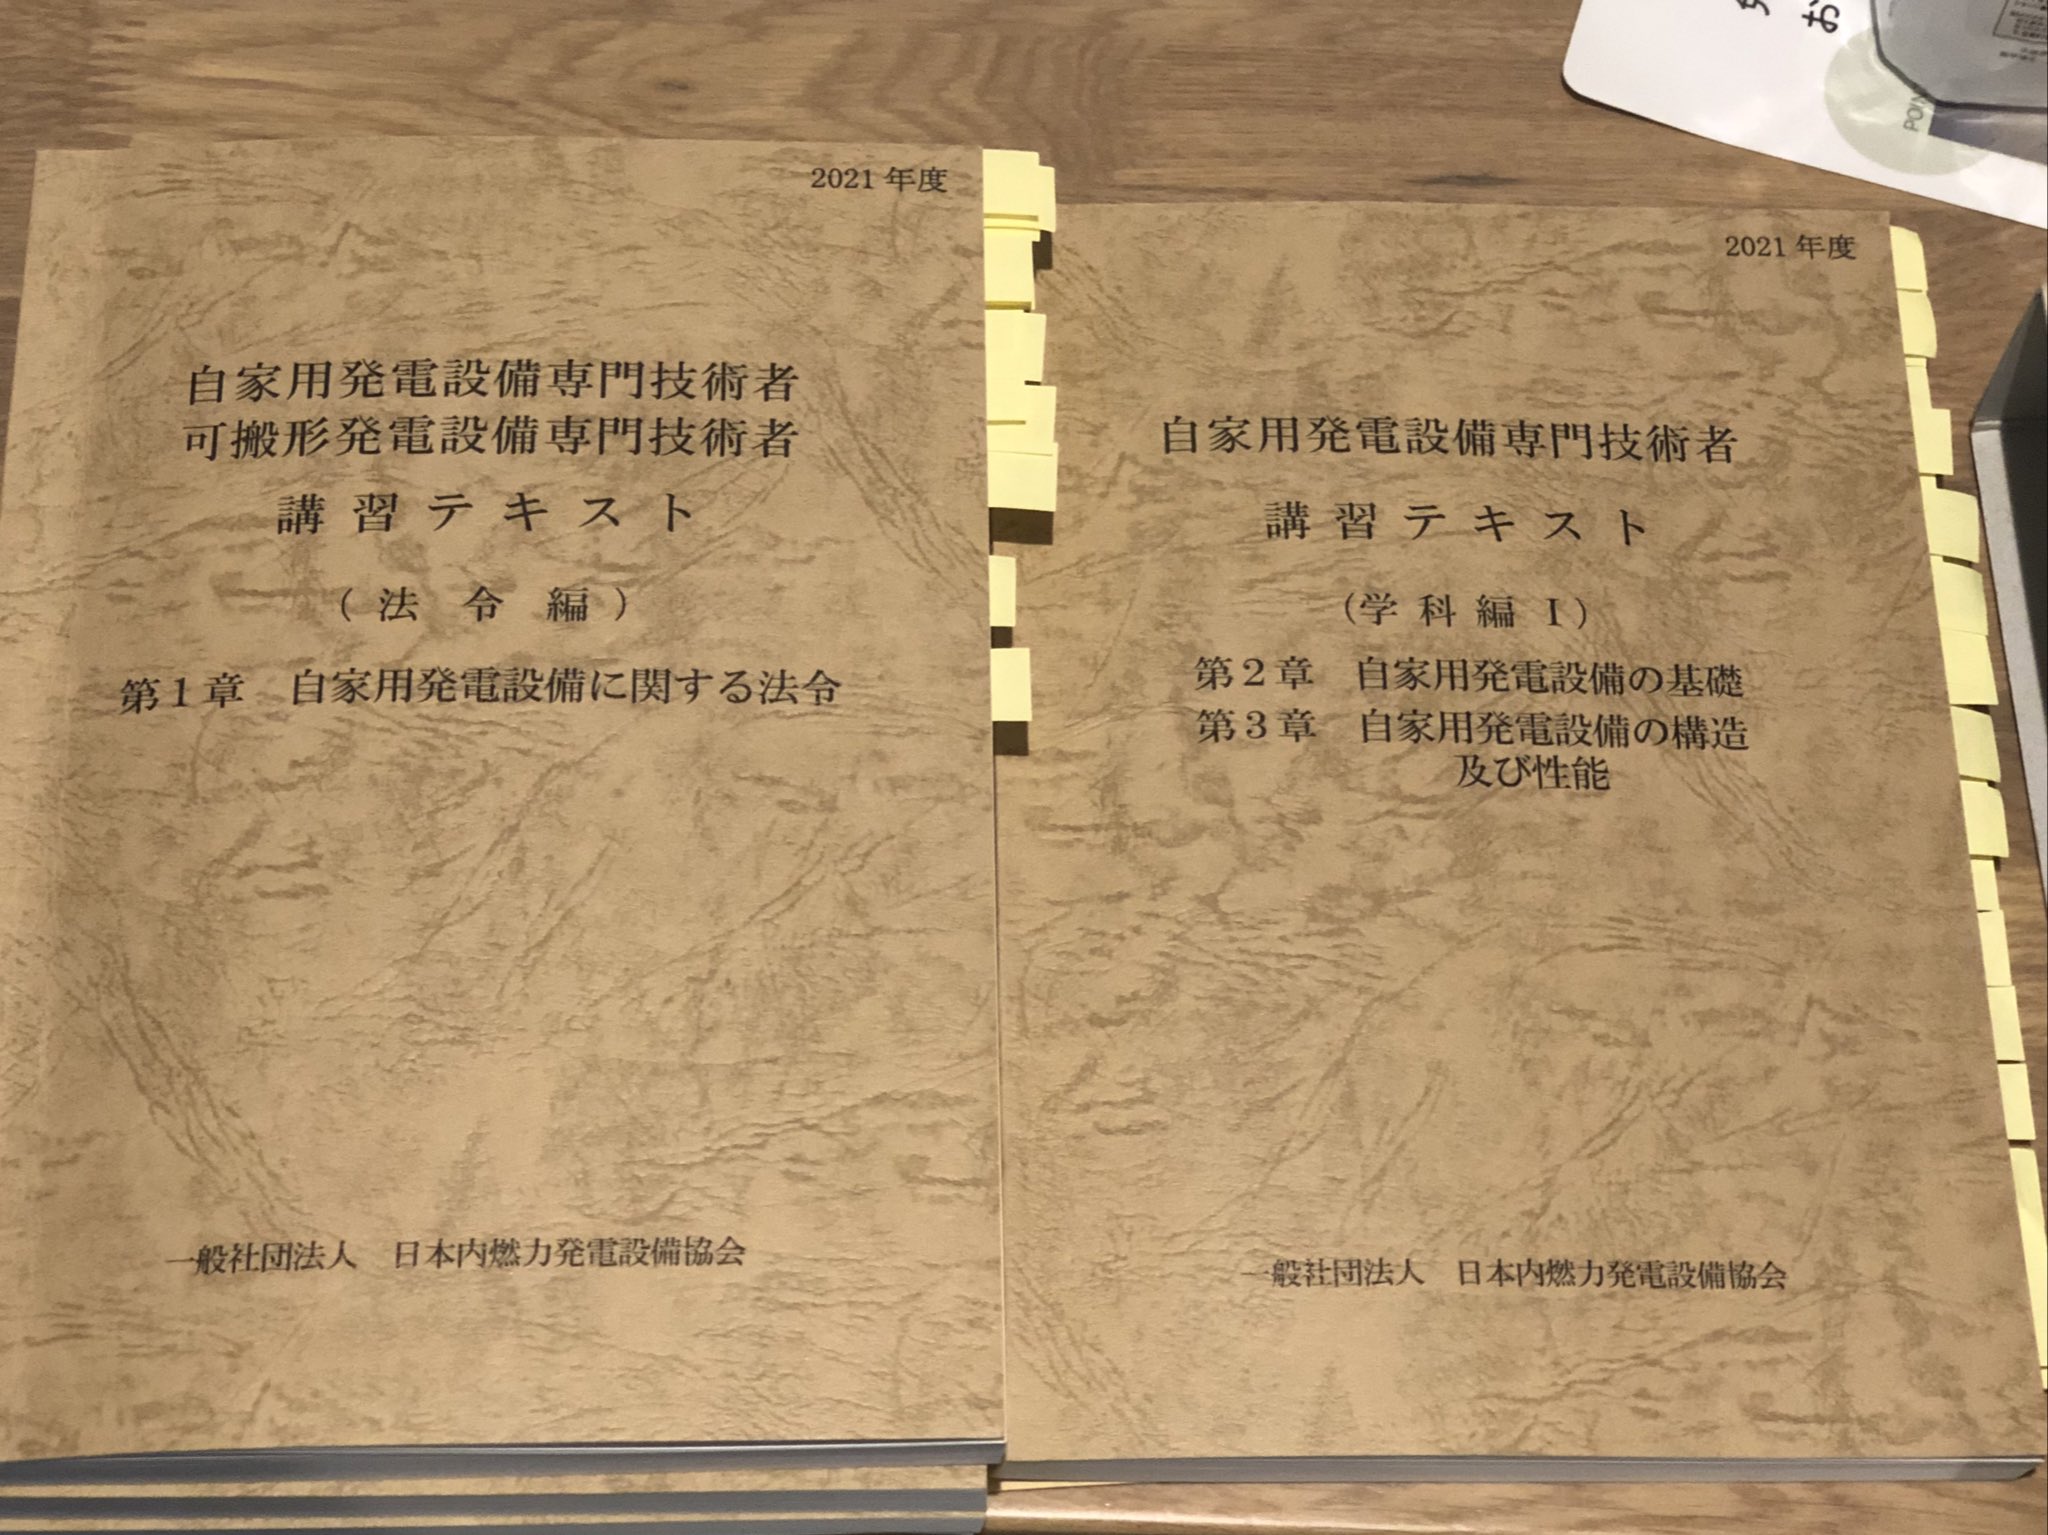 2021 年度
自家用発電設備専門技術者
可搬形発電設備専門技術者
講習テキスト
(法令編)
第1章 自家用発電設備に関する法令
一般社団法人 日本内燃力発電設備協会
2021 年度
自家用発電設備専門技術者
講習テキスト
(学科編 I)
第2章 自家用発電設備の基礎
第3章 自家用発電設備の構造
及び性能
一般社団法人 日本内燃力発電設備協会
お
POIN